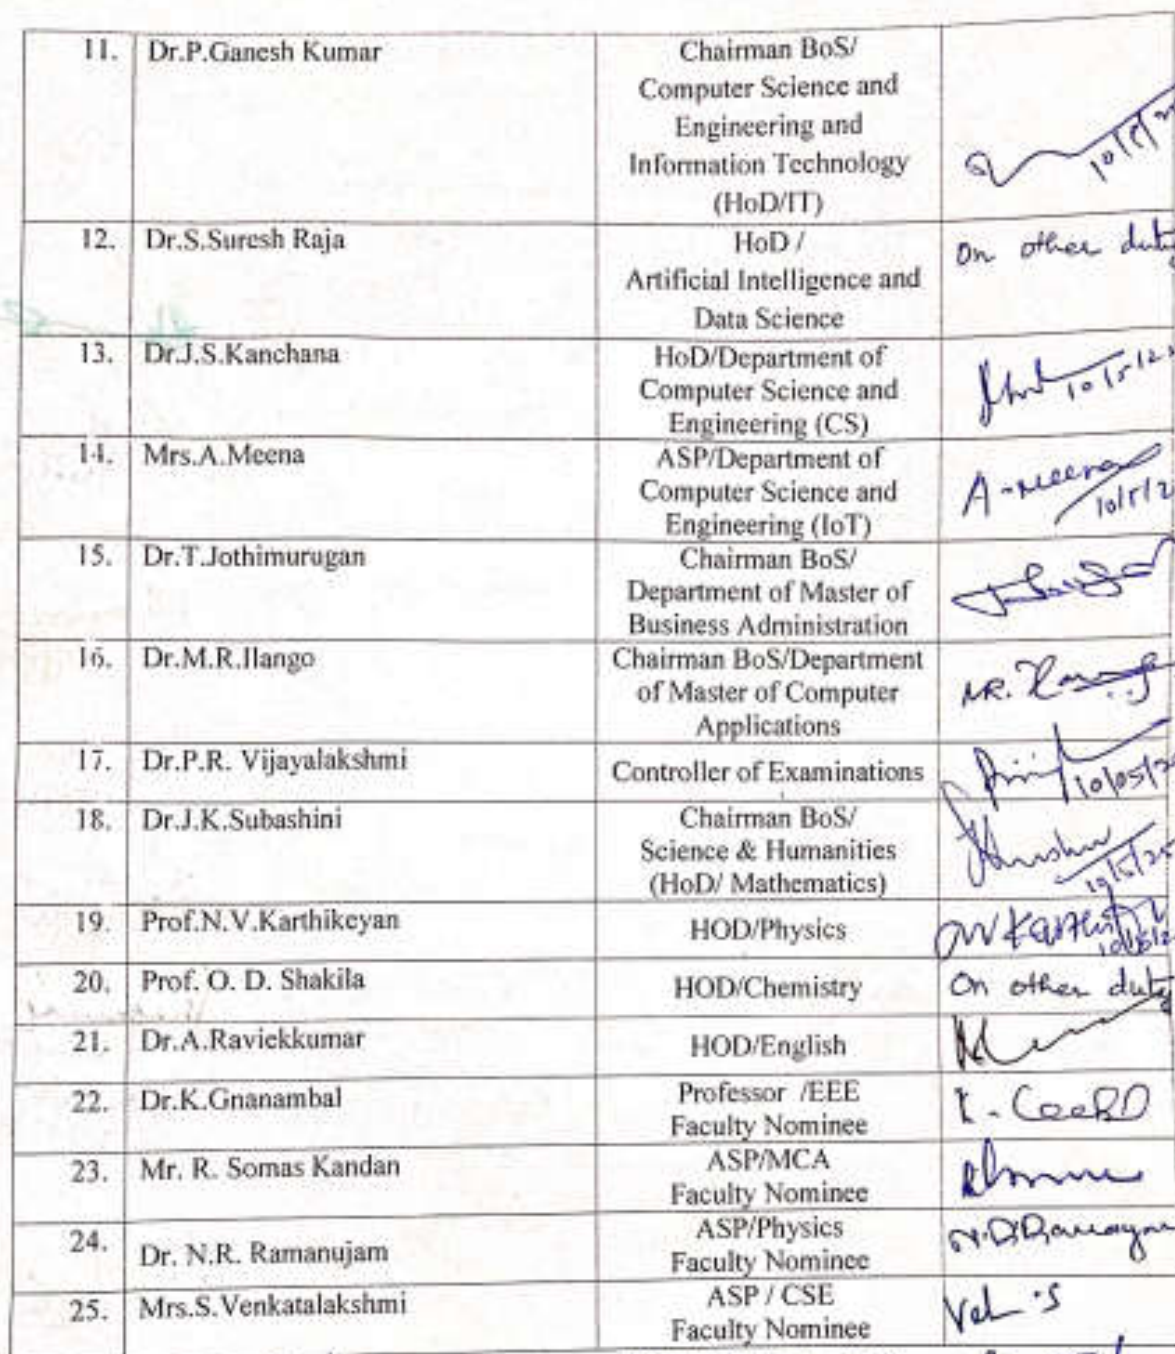 11. Dr.P.Ganesh Kumar Chairman BoS/
Computer Science and
Engineering and
Information Technology
(HoD/IT)
12. Dr.S.Suresh Raja HoD / On other duty
Artificial Intelligence and
Data Science
13. Dr.J.S.Kanchana HoD/Department of
Computer Science and
Engineering (CS)
14. Mrs.A.Meena ASP/Department of
Computer Science and A-Meena
Engineering (IoT)
15. Dr.T.Jothimurugan Chairman BoS/
Department of Master of
Business Administration
16. Dr.M.R.Ilango Chairman BoS/Department
of Master of Computer
Applications
17. Dr.P.R. Vijayalakshmi Controller of Examinations
18. Dr.J.K.Subashini Chairman BoS/
Science & Humanities
(HoD/ Mathematics)
19. Prof.N.V.Karthikeyan HOD/Physics
20. Prof. O. D. Shakila HOD/Chemistry On other duty
21. Dr.A.Raviekkumar HOD/English
22. Dr.K.Gnanambal Professor /EEE
Faculty Nominee
23. Mr. R. Somas Kandan ASP/MCA
Faculty Nominee
24. Dr. N.R. Ramanujam ASP/Physics
Faculty Nominee
25. Mrs.S.Venkatalakshmi ASP / CSE
Faculty Nominee